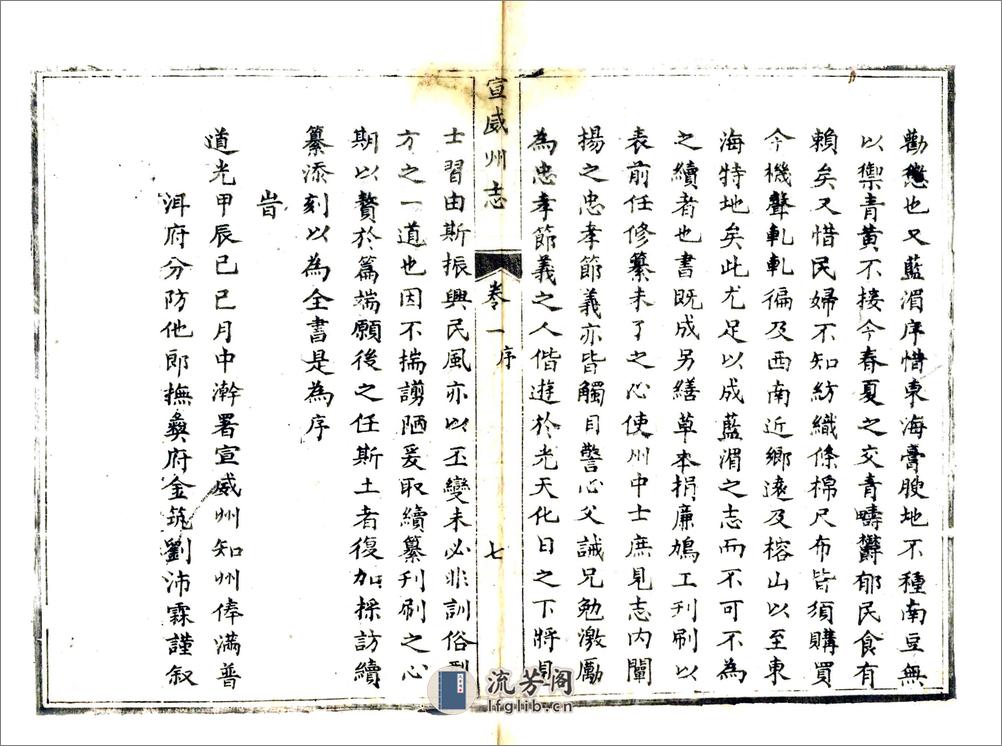 勸懲也又藍濵序惜東海膏腴地不種南豆無
以禦青黃不接今春夏之交青疇欝郁民食有
賴矣又惜民婦不知紡織條棉尺布皆須購買
今機聲軋軋徧及西南近鄉遠及榕山以至東
海特地矣此尤足以成藍濵之志而不可不為
之續者也書既成另繕草本捐廉鳩工刋刷以
表前任修纂未了之心使州中士庶見志內闡
揚之忠孝節義亦皆觸目警心父誡兄勉激勵
為忠孝節義之人偕遊於光天化日之下將見
宣威州志 卷一 序 七
士習由斯振興民風亦以丕變未必非訓俗型
方之一道也因不揣謭陋爰取續纂刋刷之心
期以贅於篇端願後之任斯土者復加採訪續
纂添刻以為全書是為序
旹
道光甲辰己巳月中澣署宣威州知州俸滿普
洱府分防他郎撫彝府金筑劉沛霖謹叙
流芳阁
lfglib.cn